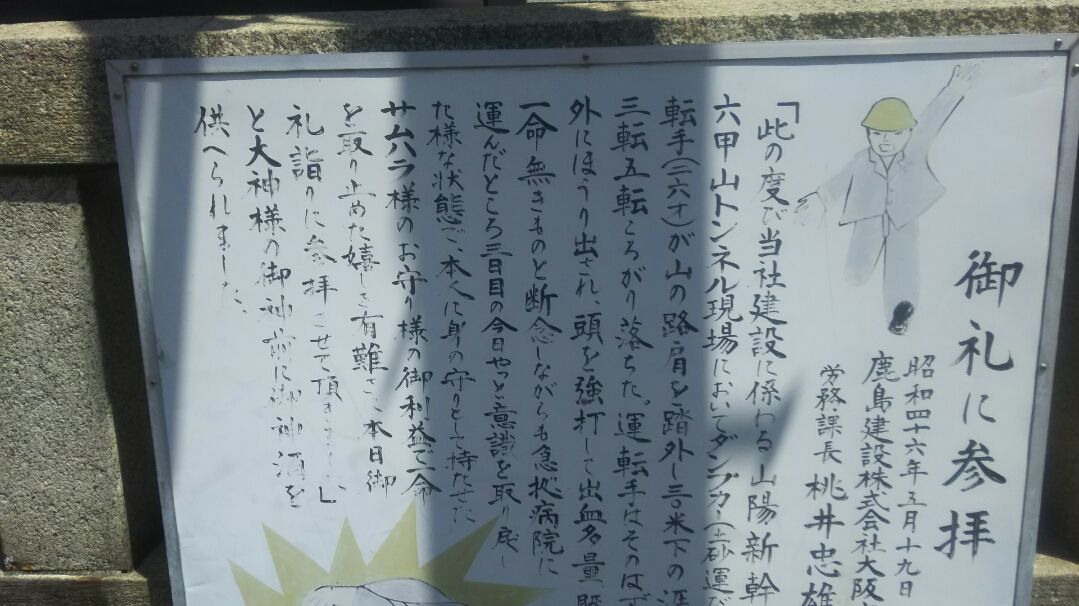 御礼に参拝
昭和四十六年五月十九日
鹿島建設株式会社大阪
労務課長 桃井忠雄
「此の度び当社建設に係わる山陽新幹
六甲山トンネル現場においてダンプカー(土砂運
転手(三六才)が山の路肩を踏外し三〇米下の
三転五転ころがり落ちた。運転手はそのは
外にほうり出され、頭を強打して出血多量
一命無きものと断念しながらも急拠病院に
運んだところ三日目の今日やっと意識を取り戻し
た様な状態で、本人に身の守りとして持たせた
サムハラ様のお守り様の御利益で一命
を取り止めた嬉しさ有難さ、本日御
礼詣りに参拝させて頂きました」
と大神様の御神前に御神酒を
供へられました。